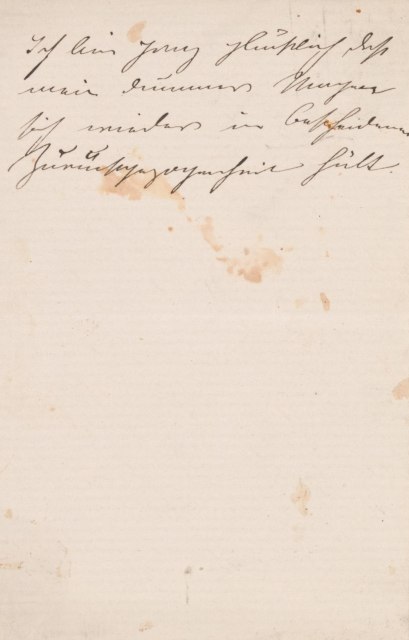 Ich bin ganz glücklich, daß
mein dummer Magen
sich wieder in bescheidener
Zurückgezogenheit hält.